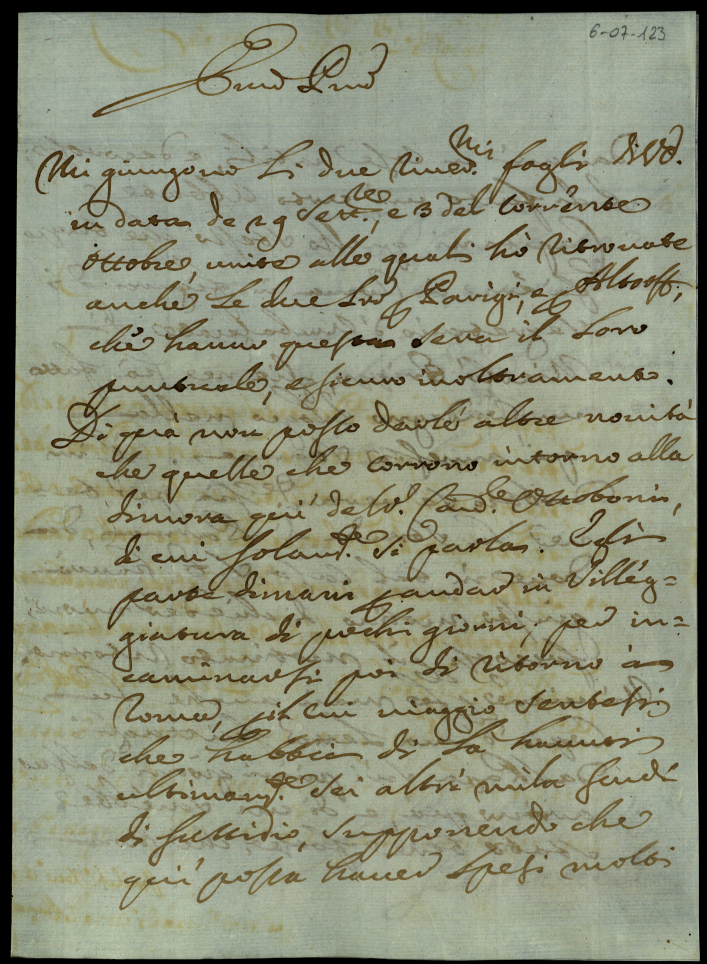 6-07-123
Mi giungono li due river.mi fogli di V.S.
in data de 29 Sett.re, e 3 del corrente
Ottobre, unite alle quali hò ritrovate
anche le due p Parigi, e p
che hanno questa sera il loro
puntuale, e sicuro inoltramento.
Di quà non posso darle altre novità
che quelle che corrono intorno alla
dimora qui del Card.le Ottoboni,
di cui solam.te si parla. Egli
parte dimani p andar in Villeg=
giatura di pochi giorni, per in=
caminarsi poi di ritorno à
Roma, p il cui viaggio sentesi
che habbia di là havuti
ultimam.te sei altri mila scudi
di sussidio, supponendo che
qui possa haver spesi molti